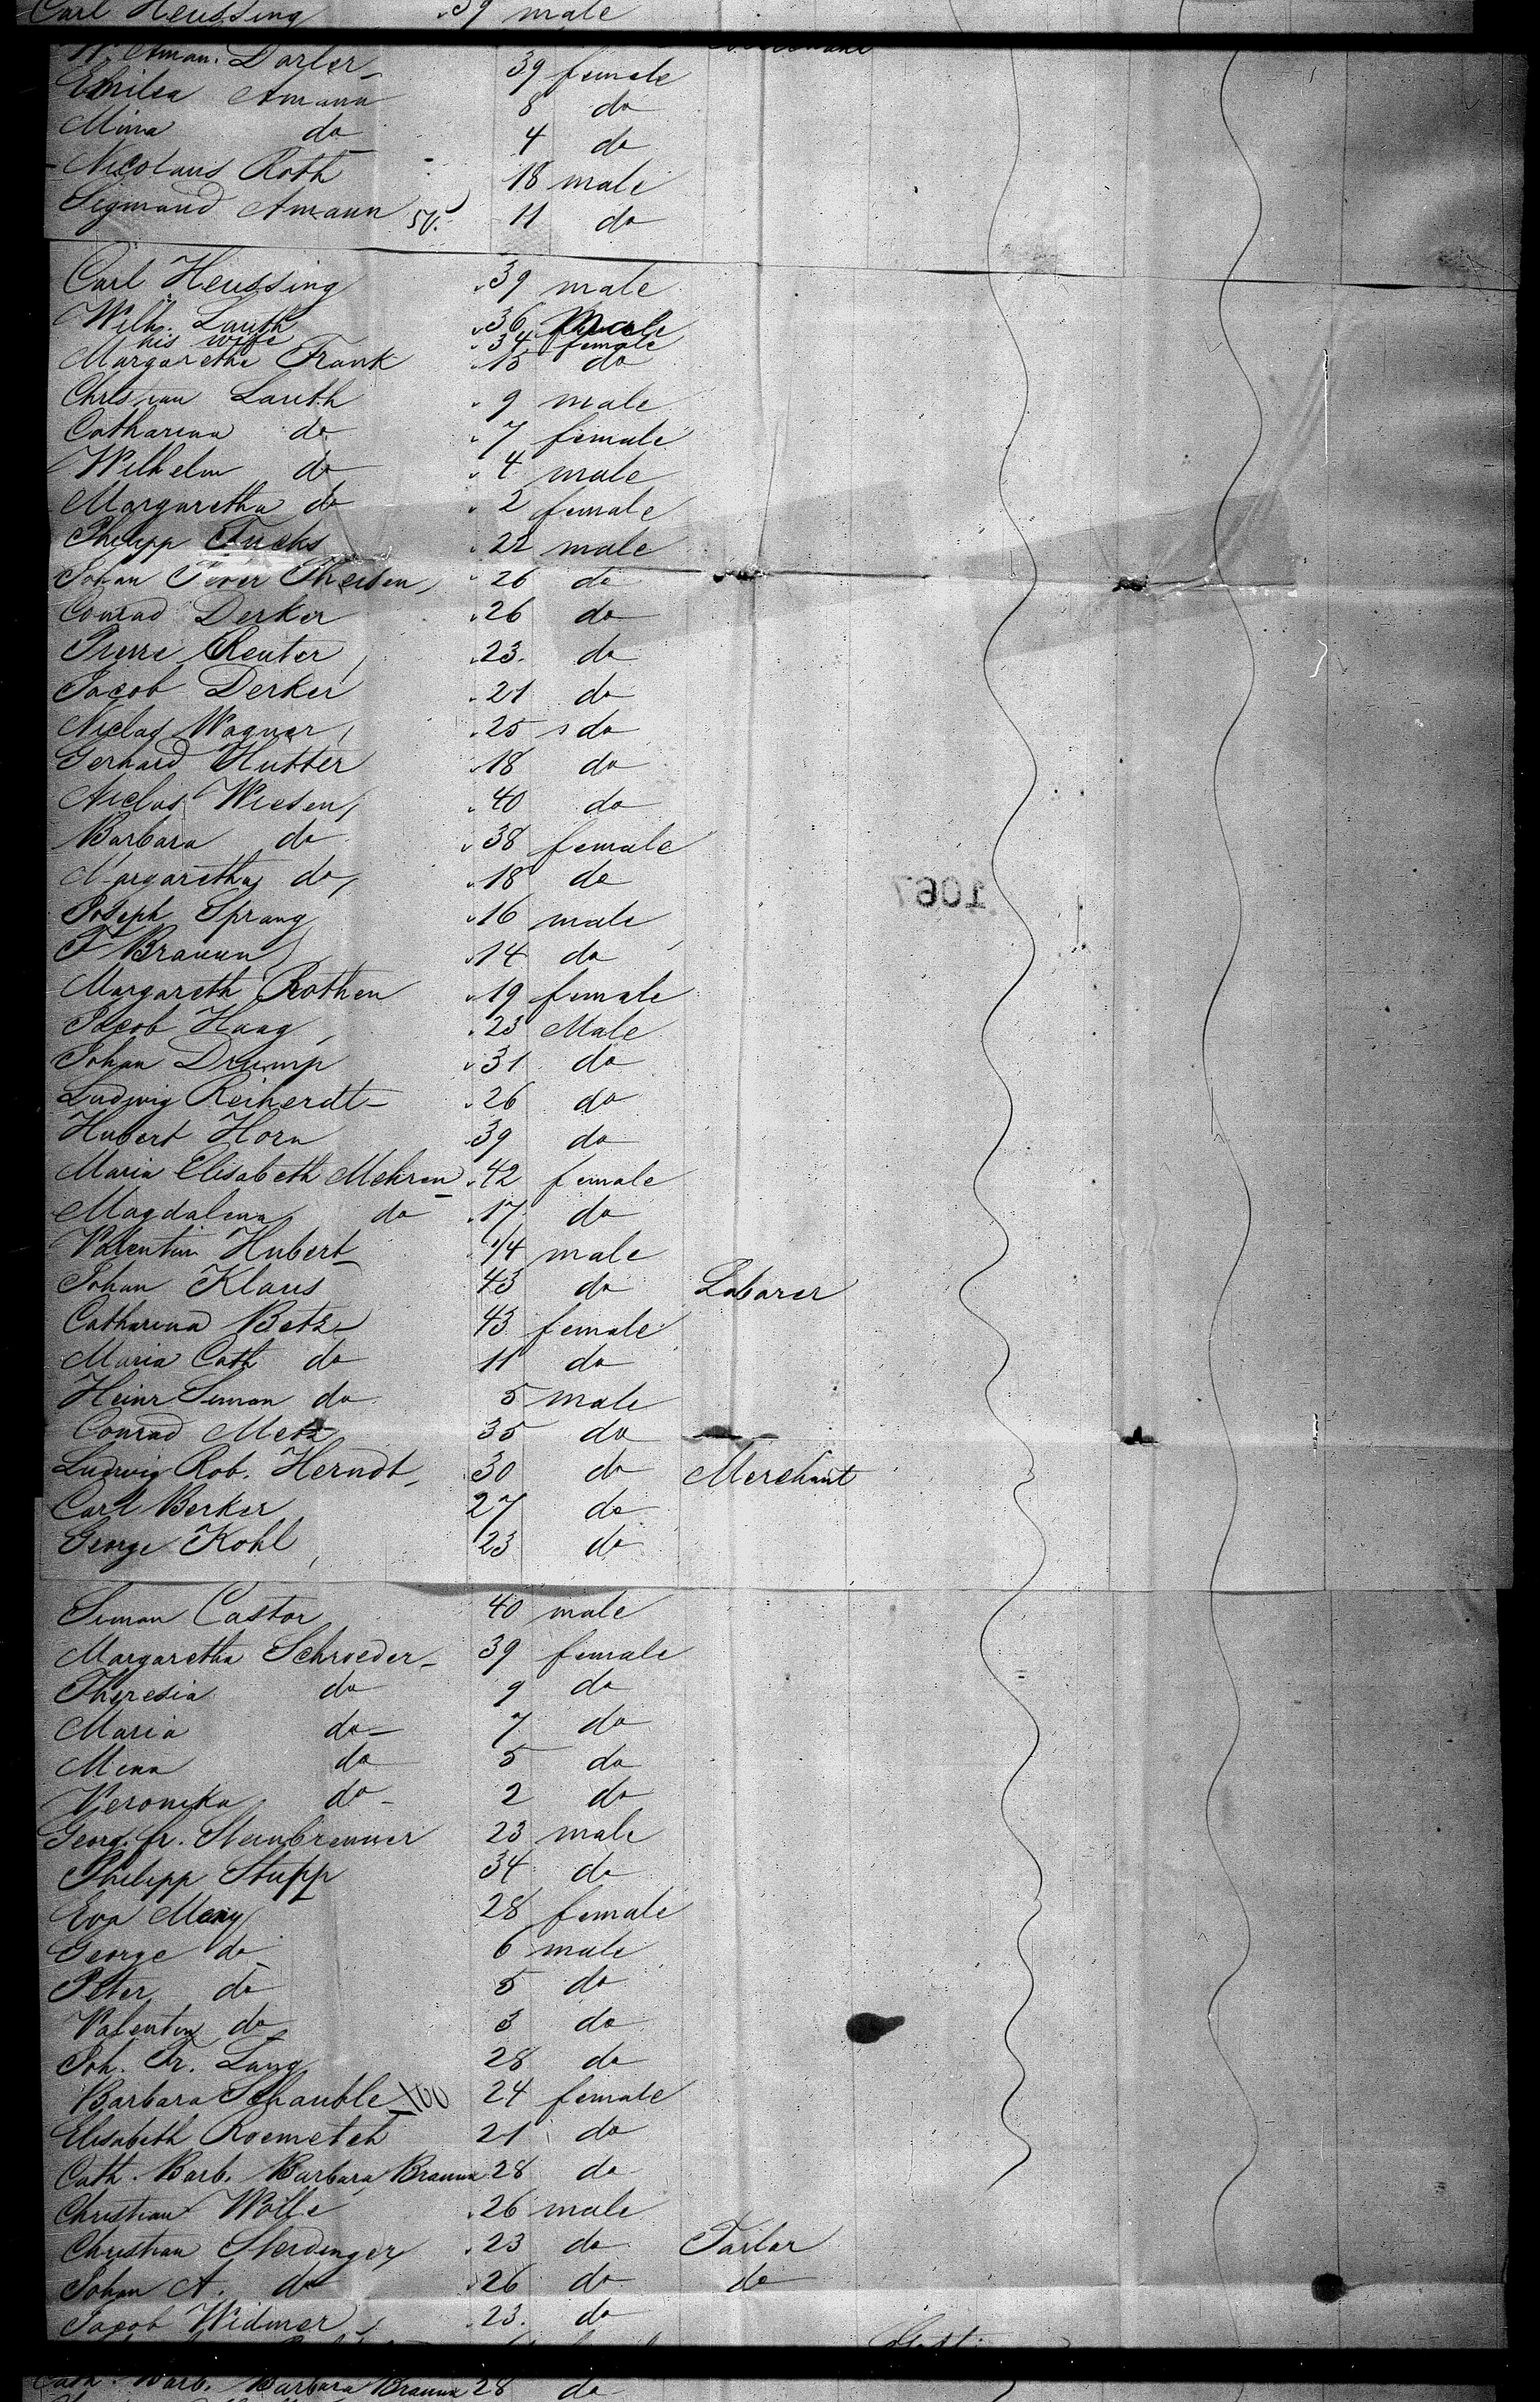 Carl Heussing 39 male
W. Aman. Darler 39 female
Emilea Amann 8 do
Mina do 4 do
Nicolaus Roth 18 male
Sigmund Amann 50. 11 do
Carl Heussing 39 male
Wilh. Lauth 36 Male
his wife 34 female
Margaretha Frank 15 do
Christian Lauth 9 male
Catharina do 7 female
Wilhelm do 4 male
Margaretha do 2 female
Philipp Fuchs 22 male
Johan Theisen 26 do
Conrad Derker 26 do
Pierre Reuter 23. do
Jacob Derker 21 do
Niclas Wagner 25 do
Gerhard Hutter 18 do
Niclas Wiesen 40 do
Barbara do 38 female
Margaretha do 18 do
Joseph Sprang 16 male
F Braunn 14 do
Margareth Rothen 19 female
Jacob Haag 23 Male
Johan Drump 31 do
Ludwig Reiherdt 26 do
Hubert Horn 39 do
Maria Elisabeth Mehren 42 female
Magdalena do 17 do
Valentin Hubert 1/4 male
Johan Klaus 43 do Laborer
Catharina Betz 43 female
Maria Cath do 11 do
Heinr Simon do 5 male
Conrad Metz 35 do
Ludwig Rob. Herndt 30 do Merchant
Carl Berker 27 do
George Kohl 23 do
Simon Castor 40 male
Margaretha Schroeder 39 female
Theresia do 9 do
Maria do 7 do
Mina do 5 do
Veronika do 2 do
Georg fr. Steinbrenner 23 male
Philipp Stupp 34 do
Eva Meny 28 female
George do 6 male
Peter do 5 do
Valentin do 3 do
Joh. Fr. Lang 28 do
Barbara Schauble 100 24 female
Elisabeth Roemetch 21 do
Cath. Barb. Barbara Braunn 28 do
Christian Wolle 26 male
Christian Sterdinger 23 do Tailor
Johan A. do 26 do do
Jacob Widmer 23. do
Cath. Barb. Barbara Braunn 28 do
1067